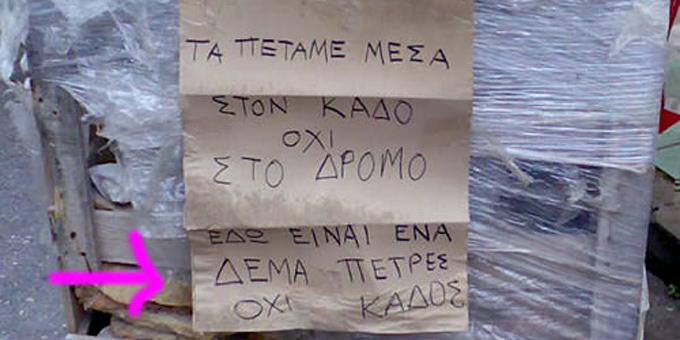 ΤΑ ΠΕΤΑΜΕ ΜΕΣΑ
ΣΤΟΝ ΚΑΔΟ
ΟΧΙ
ΣΤΟ ΔΡΟΜΟ
ΕΔΩ ΕΙΝΑΙ ΕΝΑ
ΔΕΜΑ ΠΕΤΡΕΣ
ΟΧΙ ΚΑΔΟΣ